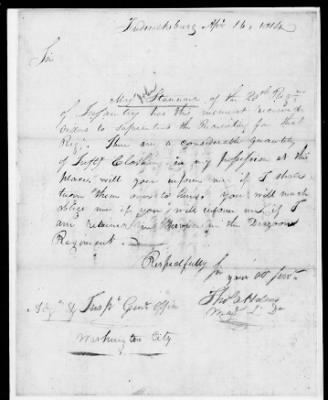 Fredericksburg Apr. 16, 1814
Sir
John
Majr Stannard of the 20th Regmt
of Infantry has this moment received
orders to superintend the Recruiting for that
Regt. There are a considerable quantity
of Infty Clothing in my possession at this
place, will you inform me, if I shall
turn them over to him? You will much
oblige me if you will inform me, if I
am retained in the Dragoon
Regiment.
Respectfully Sir
your ob Servt
Tho
Majr L. Ds
Adjt & Inspt Genl Office
Washington City